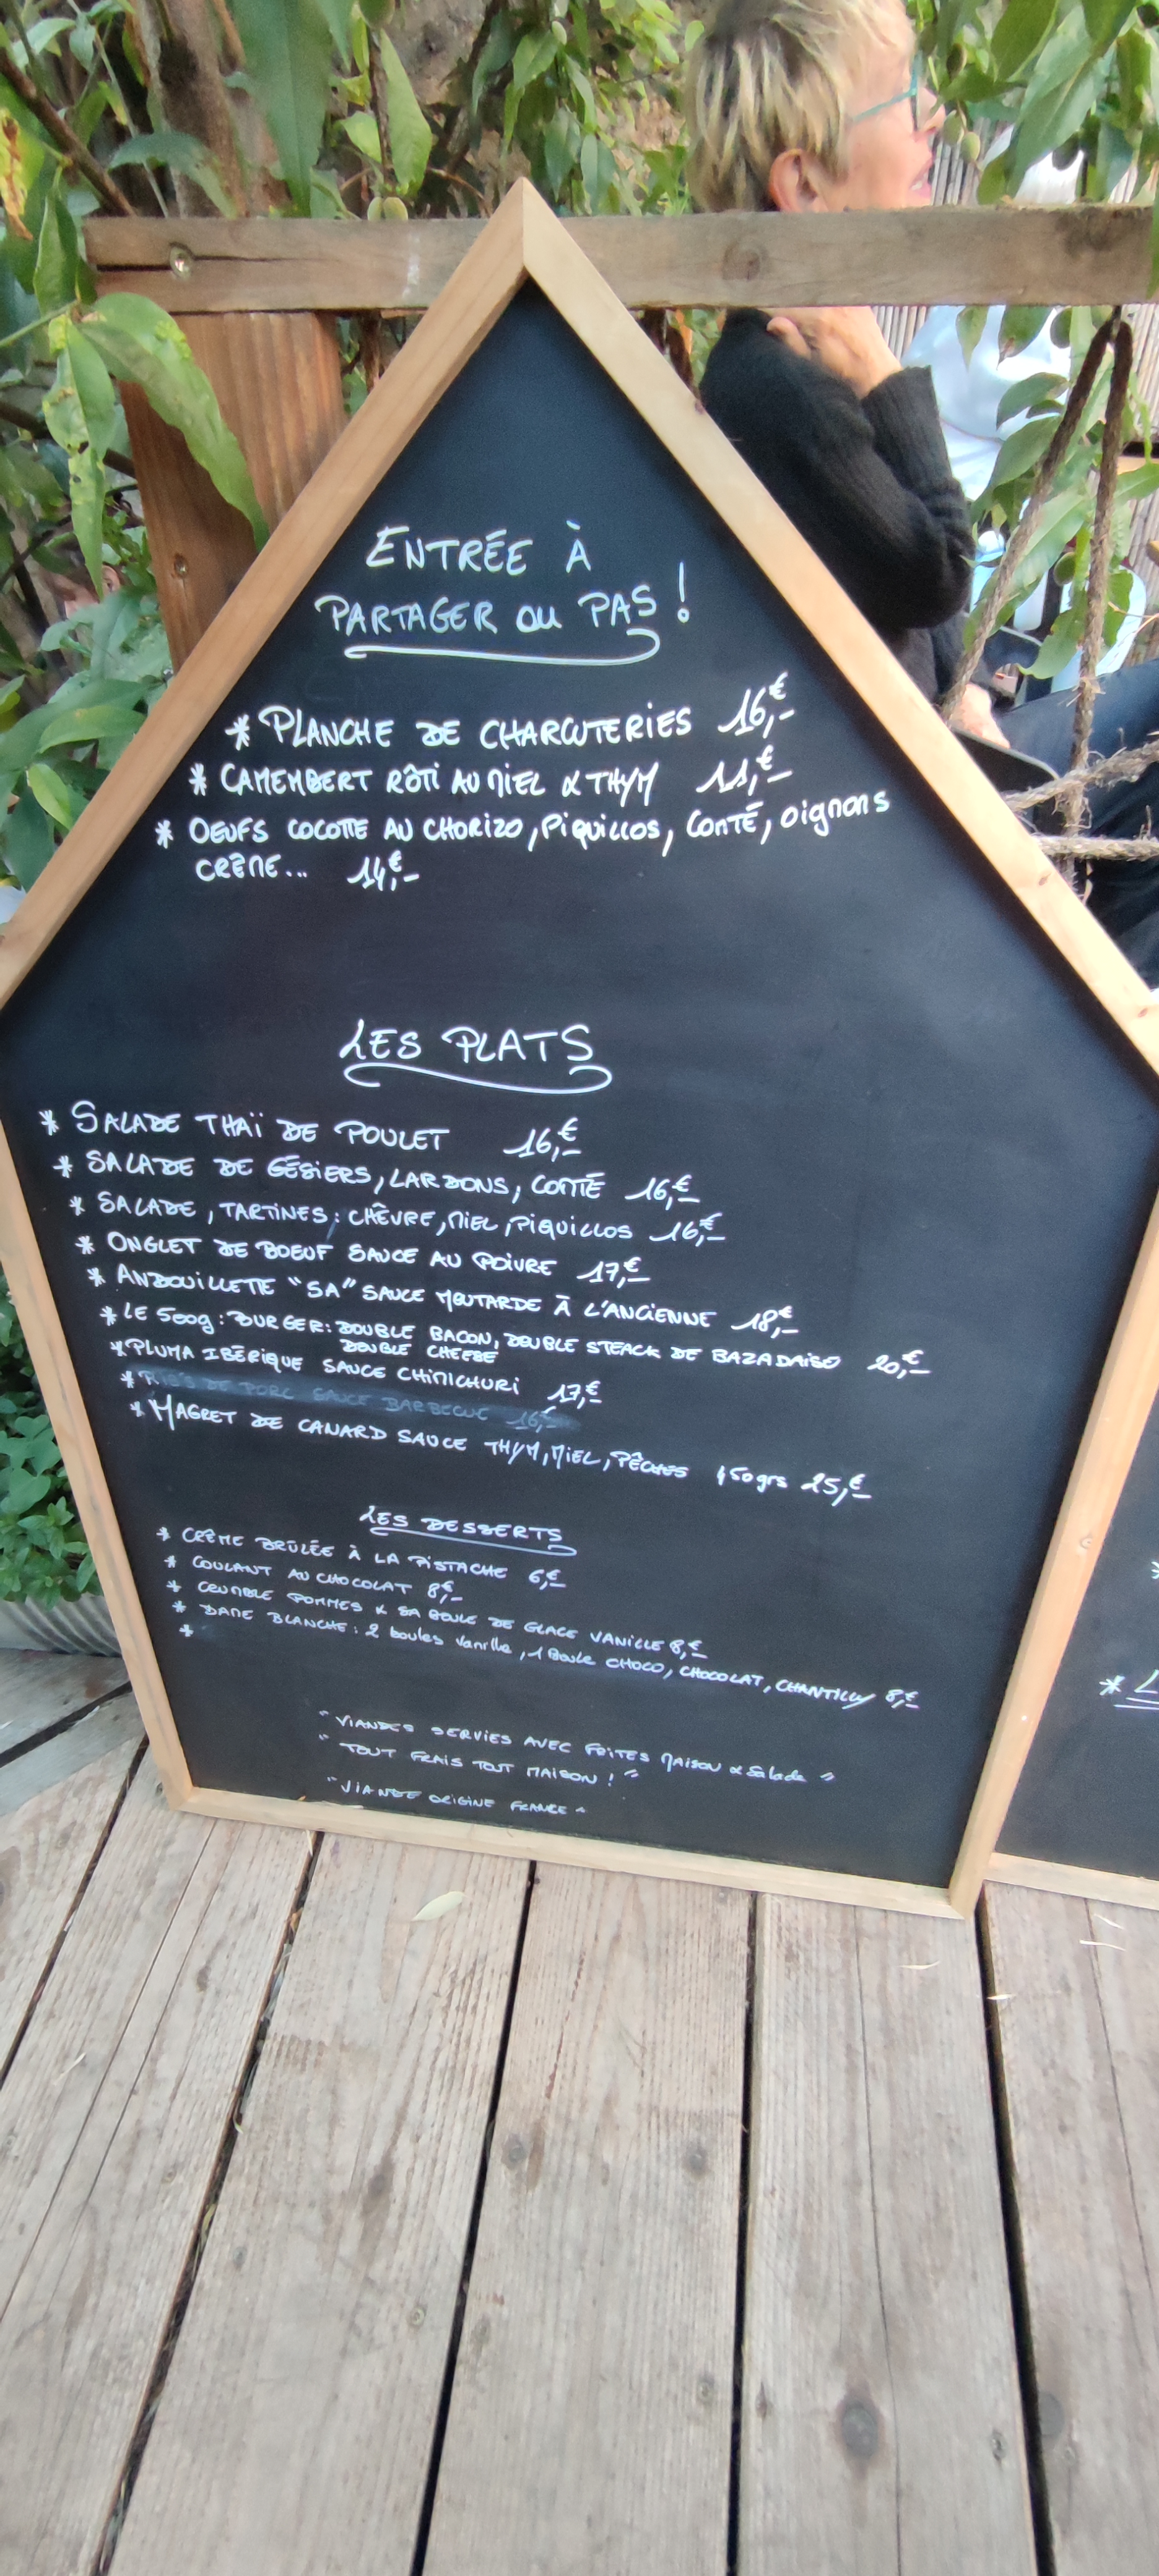 ENTRÉE À
PARTAGER OU PAS !
* PLANCHE DE CHARCUTERIES 16,€-
* CAMEMBERT RÔTI AU MIEL & THYM 11,€-
* OEUFS COCOTTE AU CHORIZO, PIQUILLOS, COMTÉ, oignons
CRÈME... 14,€-
LES PLATS
* SALADE THAÏ DE POULET 16,€-
* SALADE DE GÉSIERS, LARDONS, COMTÉ 16,€-
* SALADE, TARTINES : CHÊVRE, MIEL, PIQUILLOS 16,€-
* ONGLET DE BOEUF SAUCE AU POIVRE 17,€-
* ANDOUILLETTE "SA" SAUCE MOUTARDE À L'ANCIENNE 18,€-
* LE 500g : BURGER : DOUBLE BACON, DOUBLE STEACK DE BAZADAISE 20,€-
DOUBLE CHEESE
* PLUMA IBÉRIQUE SAUCE CHIMICHURI 17,€-
* RIB'S DE PORC SAUCE BARBECUE 16,-
* MAGRET DE CANARD SAUCE THYM, MIEL, PÊCHES 450grs 25,€-
LES DESSERTS
* CRÈME BRÛLÉE À LA PISTACHE 6,€-
* COULANT AU CHOCOLAT 8,€-
* CRUMBLE POMMES & SA BOULE DE GLACE VANILLE 8,€-
* DAME BLANCHE : 2 boules vanille, 1 Boule CHOCO, CHOCOLAT, CHANTILLY 8,€-
*
"VIANDES SERVIES AVEC FRITES MAISON & Salade"
"TOUT FRAIS TOUT MAISON !"
"VIANDE ORIGINE FRANCE"